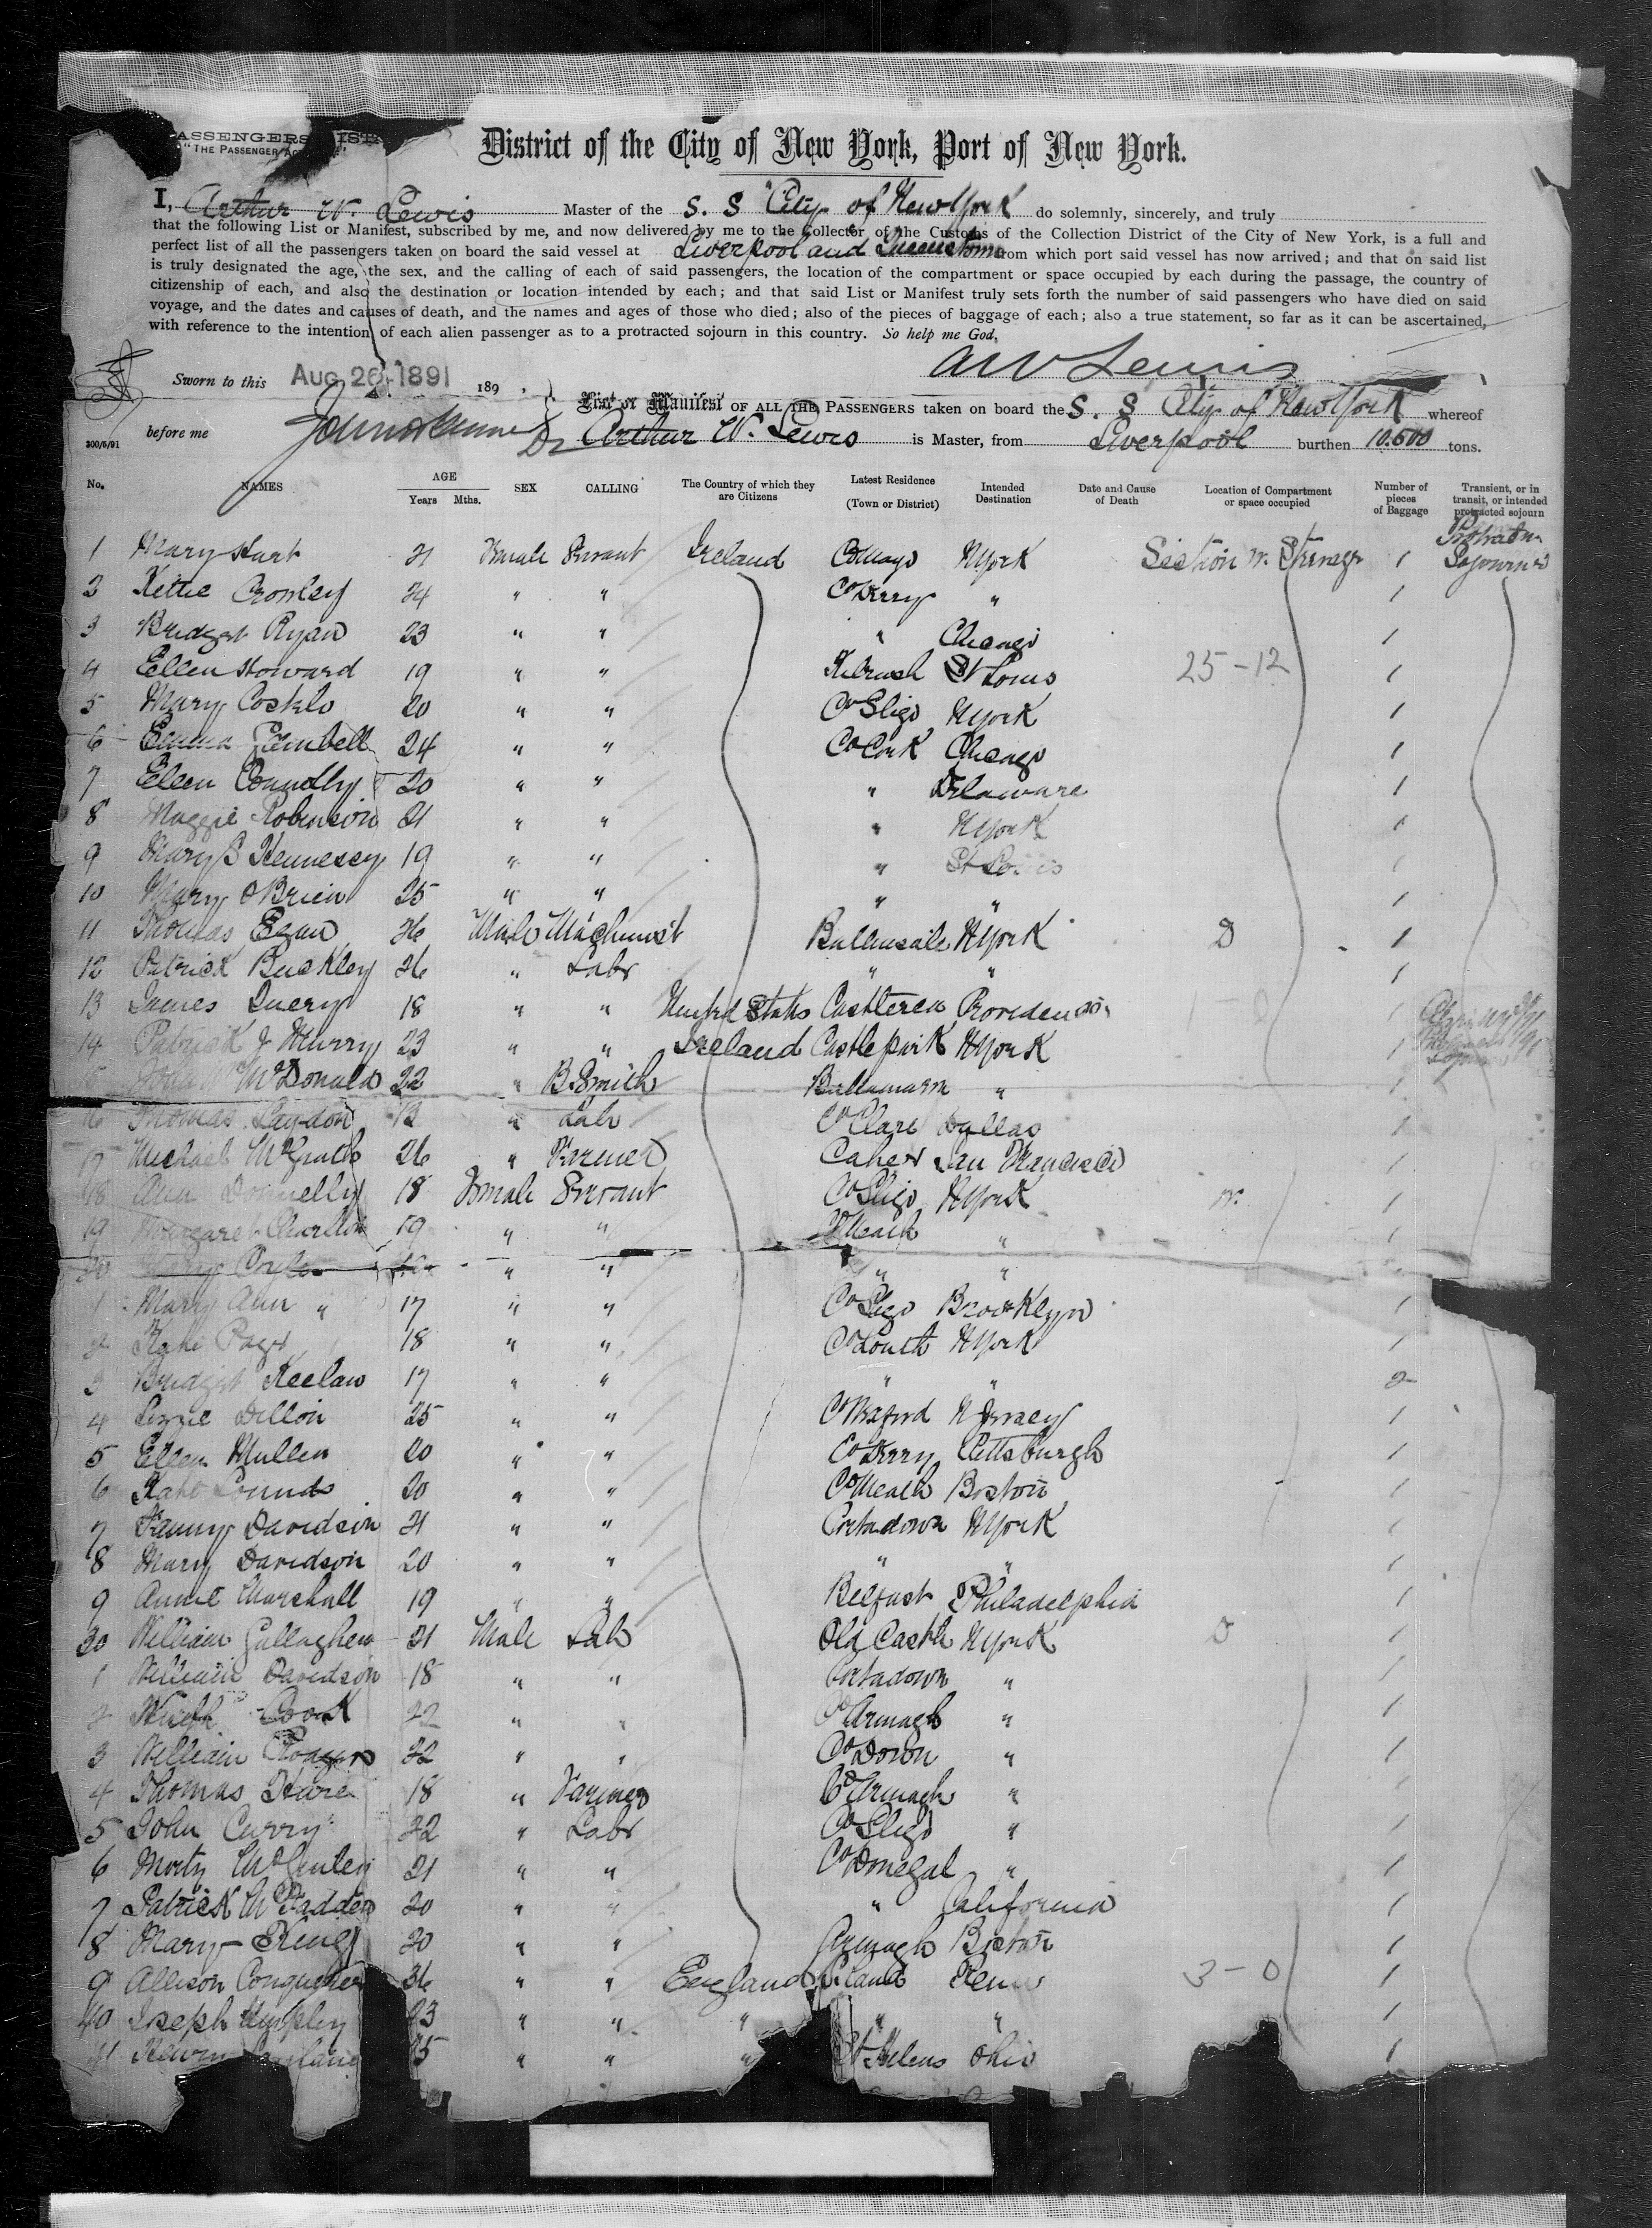 PASSENGERS LIST
"THE PASSENGER ACT
District of the City of New York, Port of New York.
I, Arthur W. Lewis Master of the S. S "City of New York do solemnly, sincerely, and truly
that the following List or Manifest, subscribed by me, and now delivered by me to the Collector of the Customs of the Collection District of the City of New York, is a full and
perfect list of all the passengers taken on board the said vessel at Liverpool and Queenstown from which port said vessel has now arrived; and that on said list
is truly designated the age, the sex, and the calling of each of said passengers, the location of the compartment or space occupied by each during the passage, the country of
citizenship of each, and also the destination or location intended by each; and that said List or Manifest truly sets forth the number of said passengers who have died on said
voyage, and the dates and causes of death, and the names and ages of those who died; also of the pieces of baggage of each; also a true statement, so far as it can be ascertained,
with reference to the intention of each alien passenger as to a protracted sojourn in this country. So help me God,
AW Lewis
Sworn to this Aug 26 1891 189 .
List or Manifest OF ALL THE PASSENGERS taken on board the S. S City of New York whereof
300/5/91 before me Arthur W. Lewis is Master, from Liverpool burthen 10.500 tons.
No. NAMES AGE Years Mths. SEX CALLING The Country of which they are Citizens Latest Residence (Town or District) Intended Destination Date and Cause of Death Location of Compartment or space occupied Number of pieces of Baggage Transient, or in transit, or intended protracted sojourn
1 Mary Hart 21 Female Servant Ireland Co Mayo N York Section W. Steerage 1 Sojourn
2 Kittie Crowley 24 " " Co Kerry " 1
3 Bridget Ryan 23 " " " Chicago 1
4 Ellen Howard 19 " " Kilrush St Louis 25-12 1
5 Mary Costelo 20 " " Co Sligo N York 1
6 Emma Gambell 24 " " Co Cork Chicago 1
7 Ellen Connolly 20 " " " Delaware 1
8 Maggie Robinson 21 " " " N York 1
9 Mary B Hennesey 19 " " " St Louis 1
10 Mary O'Brien 25 " " " " 1
11 Thomas Egan 26 Male Machinist N York D 1
12 Patrick Buckley 26 " Labr " " 1
13 James 18 " " United States Castlerea Providence 1
14 Patrick J Murry 23 " " Ireland Castlepark N York 1
John Wm McDonald 22 " B. Smith " 1
16 Thomas Laydon " Lab Co Clare Dallas 1
17 Michael McGrath 26 " Farmer Caher San Francisco 1
18 Ann Donnelly 18 Female Servant Co Sligo N York W. 1
19 Margaret Charlton 19 " " Co Meath " 1
20 Mary Coyle " " " "
1 Mary Ann " 17 " " Co Sligo Brooklyn 1
2 Kate Page 18 " " Co Louth N York 1
3 Bridget Keelan 17 " " " " 2
4 Lizzie Dillon 25 " " Co Wexford N Jersey 1
5 Ellen Mullen 20 " " Co Kerry Pittsburgh 1
6 Kate Pounds 20 " " Co Meath Boston 1
7 Fanny Davidson 21 " " Portadown N York 1
8 Mary Davidson 20 " " " " 1
9 Annie Marshall 19 " " Belfast Philadelphia 1
30 William Gallagher 21 Male Lab Old Castle N York D 1
1 William Davidson 18 " " Portadown " 1
2 Hugh Cook 22 " " Co Armagh " 1
3 William Rodgers 22 " " Co Down " 1
4 Thomas Hare 18 " Farmer Co Armagh " 1
5 John Curry 22 " Labr Co Sligo " 1
6 Morty McGinley 21 " " Co Donegal " 1
7 Patrick McFadden 20 " " " California 1
8 Mary 20 " " Armagh Boston 1
9 Allison 36 " " England Penn 3-0 1
40 Joseph 23 " " " " " 1
41 " " " St Helens Ohio 1